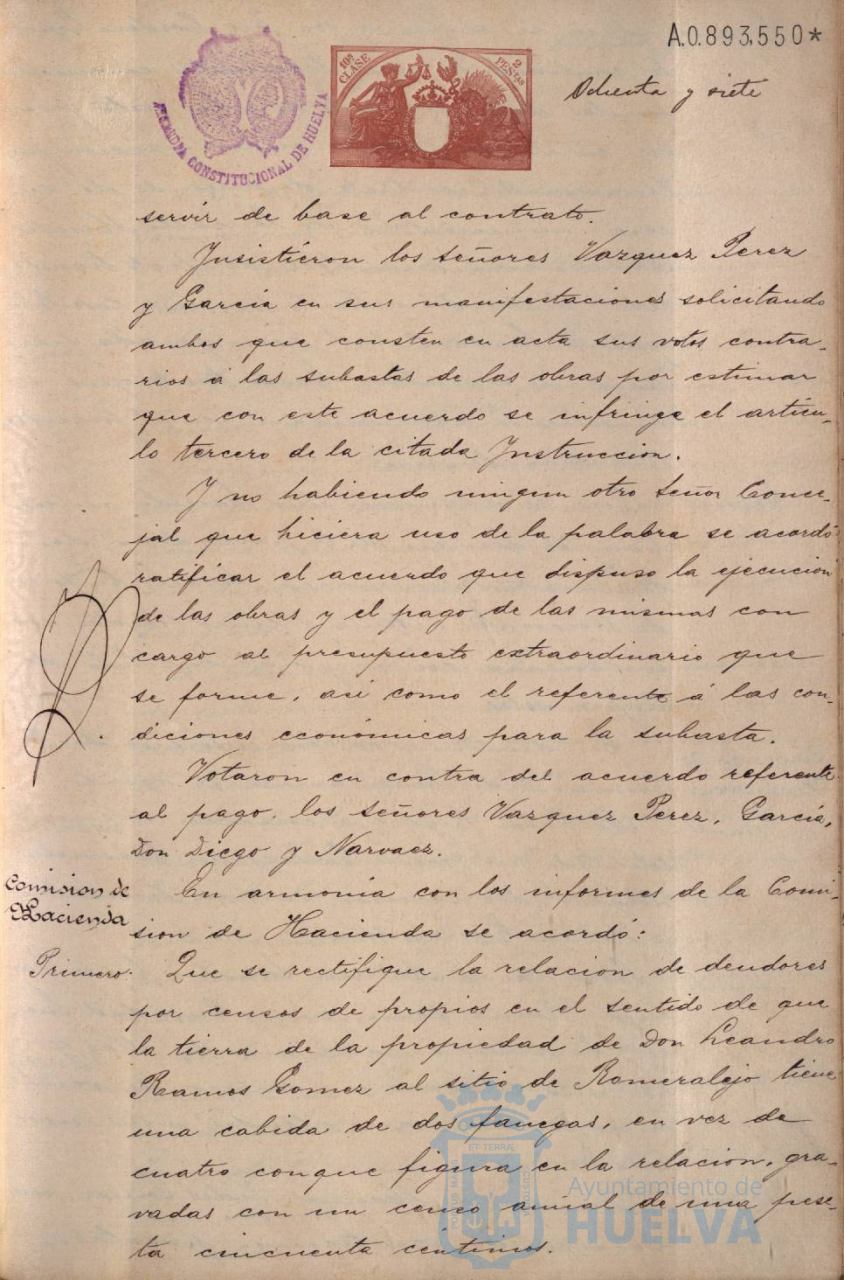 A.0.893,550*
10ª CLASE
2 PESETAS
ALCALDIA CONSTITUCIONAL DE HUELVA
Ochenta y siete
servir de base al contrato.
Insistieron los señores Vazquez Perez
y Garcia en sus manifestaciones solicitando
ambos que consten en acta sus votos contra-
rios á las subastas de las obras por estimar
que con este acuerdo se infringe el articu-
lo tercero de la citada Instruccion.
Y no habiendo ningun otro Señor Conce-
jal que hiciera uso de la palabra se acordó
ratificar el acuerdo que dispuso la ejecucion
de las obras y el pago de las mismas con
cargo al presupuesto extraordinario que
se forme, asi como el referente á las con-
diciones económicas para la subasta.
Votaron en contra del acuerdo referente
al pago, los señores Vazquez Perez, Garcia,
Don Diego y Narvaez.
Comision de
Hacienda
En armonia con los informes de la Comi-
sion de Hacienda se acordó:
Primero. Que se rectifique la relacion de deudores
por censos de propios en el sentido de que
la tierra de la propiedad de Don Leandro
Ramos Gomez al sitio de Romeralejo tiene
una cabida de dos fanegas, en vez de
cuatro conque figura en la relacion, gra-
vadas con un censo anual de una pese-
ta cincuenta céntimos.
Ayuntamiento de
HUELVA